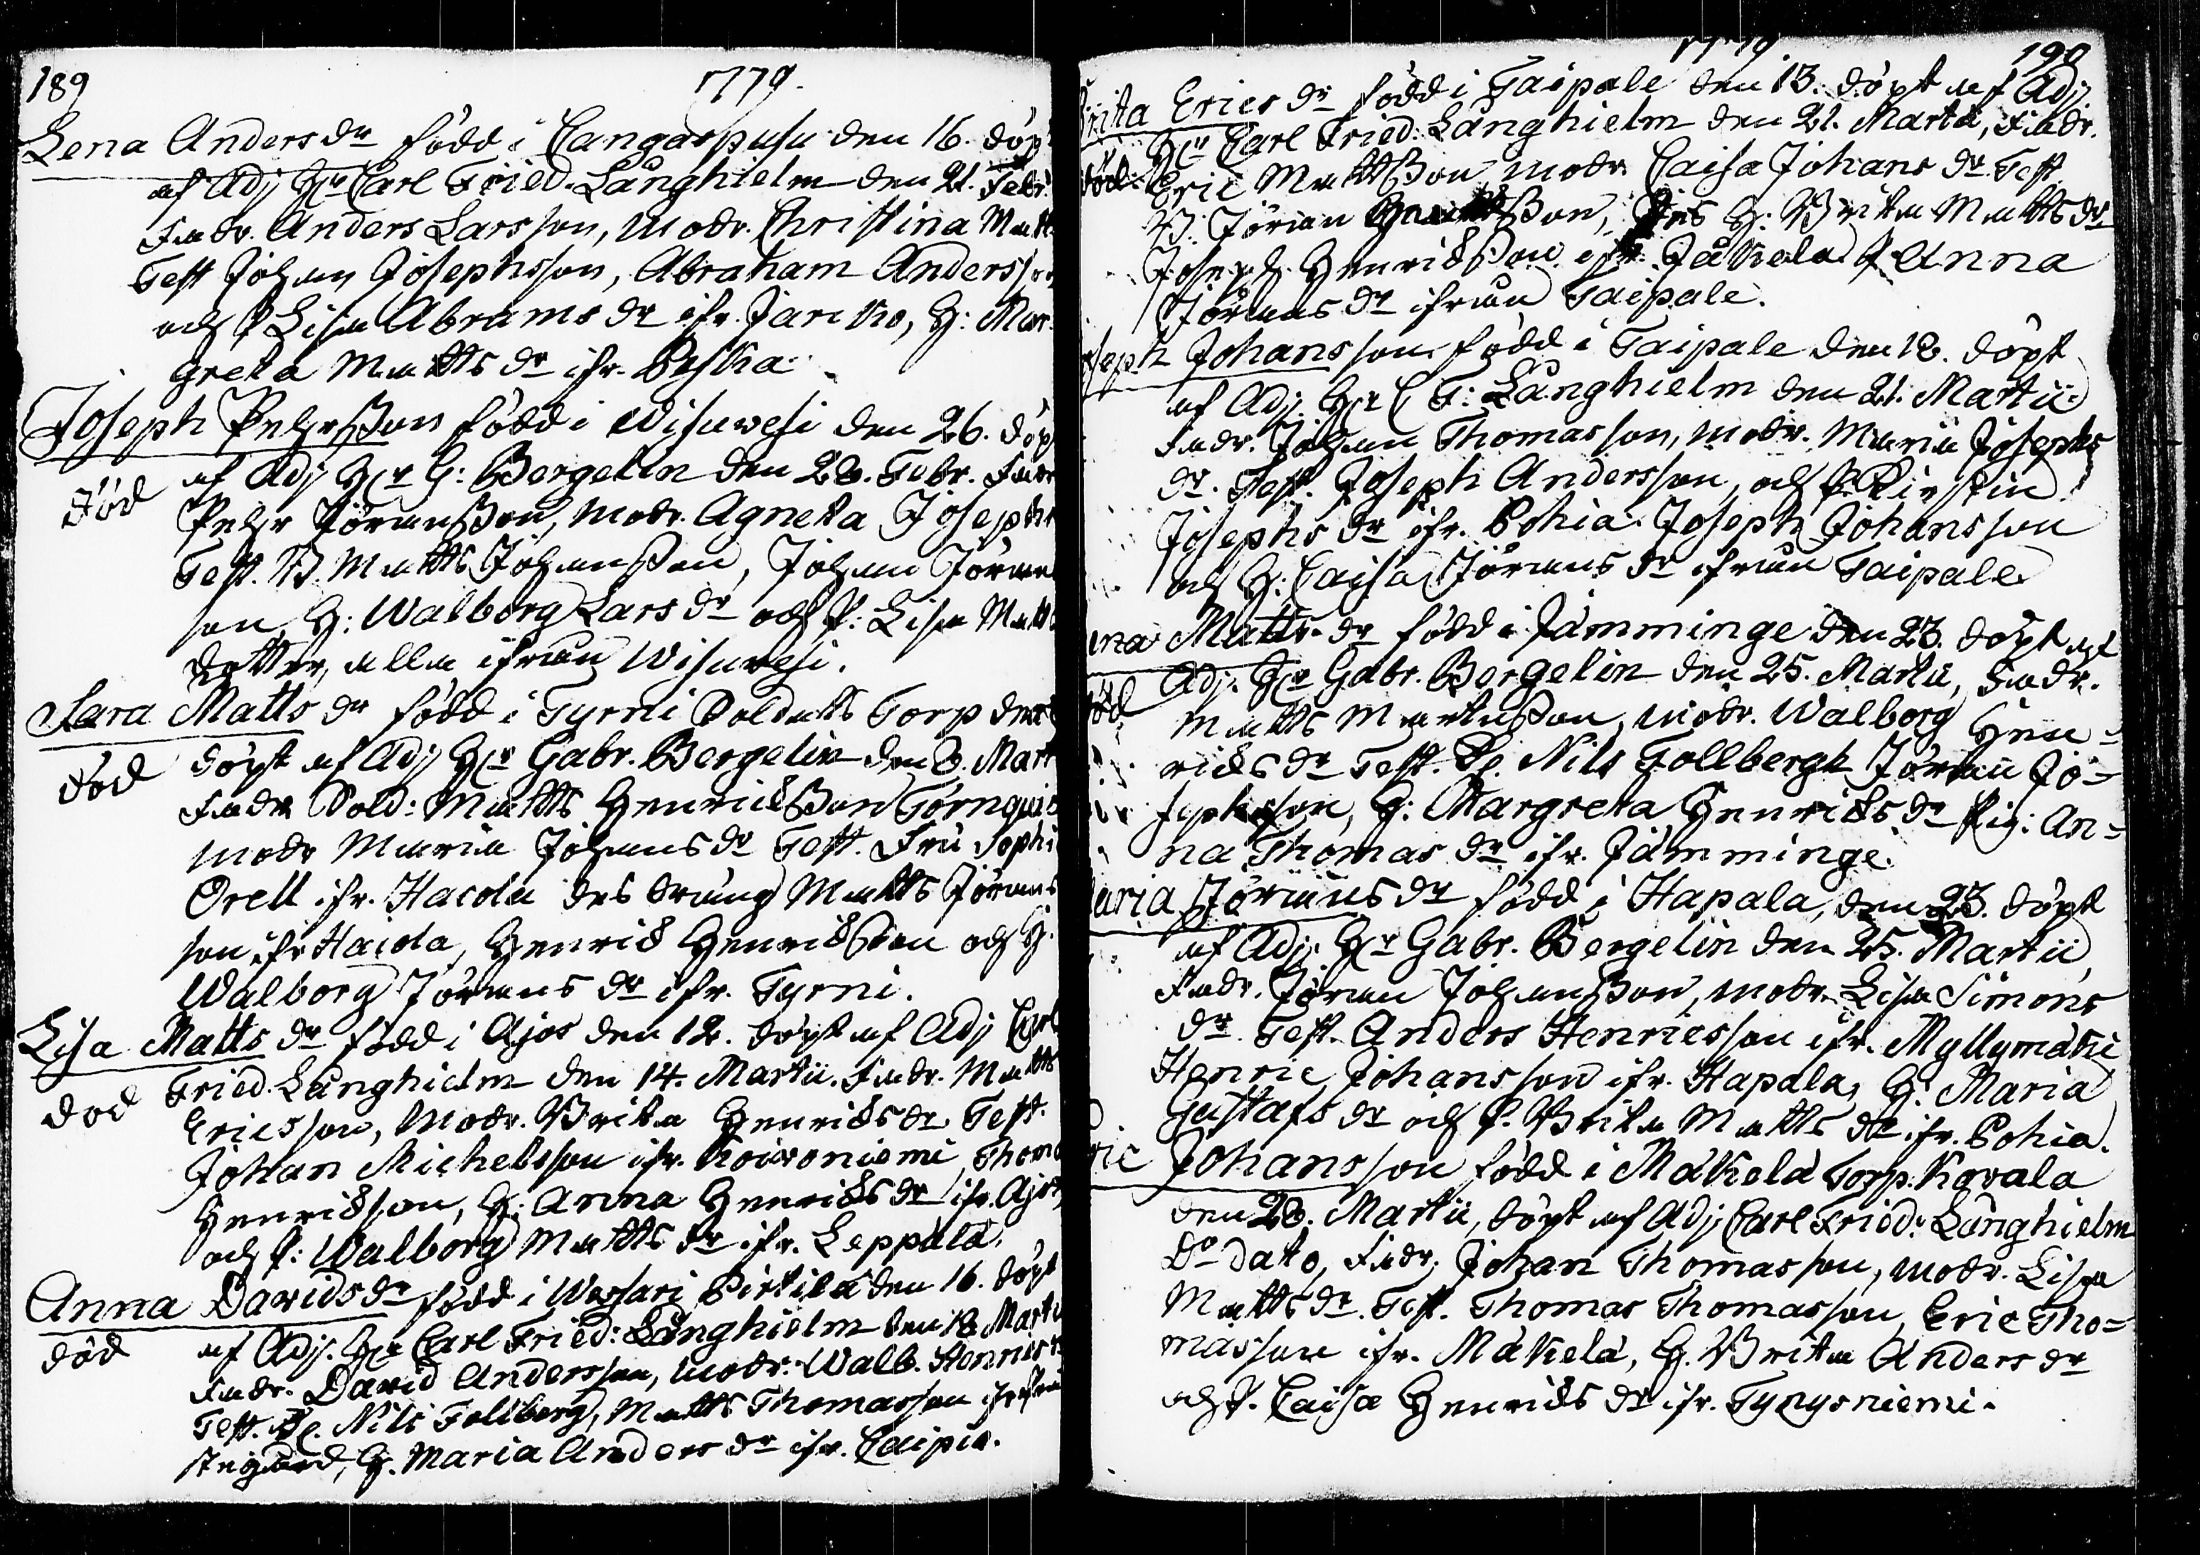 189
1779.
Lena Anders dr född i Cangaspusu den 16. döpt
af Adj Hr Carl Fried. Långhielm den 21. Febr.
Fadr. Anders Larsson, Modr. Christina Matts
Test Johan Josephsson, Abraham Andersson
och P Lisa Abrams dr ifr. Jariko, H: Mar-
greta Matts dr ifr. Peska.
Joseph Pehrsson född i Wisuvesi den 26. döpt
död
af Adj Hr G: Bergelin den 28. Febr. Fadr
Pehr Jöransson, Modr. Agneta Josephs
Test. B. Matts Johansson, Johan Jörans
son, H: Walborg Lars dr och P: Lisa Matts
dotter, alla ifrån Wisuvesi.
Sara Matts dr född i Tyrni Soldats Torp den
död
döpt af Adj Hr Gabr. Bergelin den 8. Mart
Fadr Sold: Matts Henricsson Törnquist
modr Maria Johans dr Test. Fru Sophia
Orell ifr. Hacola des dräng Matts Jörans
son ifr Hacola, Henric Henricsson och H.
Walborg Jörans dr ifr. Tyrni.
Lisa Matts dr född i Ajos den 12. döpt af Adj Carl
död
Fried. Långhielm den 14. Martii. Fadr. Matts
Ericsson, Modr. Brita Henrics dr Test.
Johan Michelsson ifr. Koivoniemi, Thomas
Henricsson, H: Anna Henrics dr ifr. Ajos,
och P: Walborg Matts dr ifr. Leppälä.
Anna Davids dr född i Wessari Pirtilä den 16. döpt
död
af Adj. Hr Carl Fried: Långhielm den 18 Martii
Fadr. David Andersson, Modr. Walb. Henrics
Test. Nils Follberg, Matts Thomasson ifr
H. Maria Anders dr ifr. Caipia.
1779
190
Brita Erics dr född i Taipale den 13. döpt af Adj
död
Hr Carl Fried: Långhielm den 21. Martii, Fadr.
Eric Mattsson Modr Caisa Johans dr Test
B. Jöran Mattsson, des H: Brita Matts dr
Joseph Henricsson ifr. Jäkelä P Anna
Jörans dr ifrån Taipale.
Joseph Johansson född i Taipale den 18. döpt
af Adj. Hr C F: Långhielm den 21. Martii
Fadr. Johan Thomasson, Modr. Maria Josephs
dr. Test. Joseph Andersson, och P. Kirstin
Josephs dr ifr. Pohia. Joseph Johansson
och H: Caisa Jörans dr ifrån Taipale
Matts dr född i Jämminge den 23. döpt af
död
Adj. Hr Gabr. Bergelin den 25. Martii, Fadr.
Matts Martinsson, Modr. Walborg Hen-
rics dr Test. Nils Follbergh Jöran Jo-
sephsson, H: Margreta Henrics dr Pig: An-
na Thomas dr ifr. Jämminge.
Maria Jörans dr född i Hapala, den 23. döpt
af Adj. Hr Gabr. Bergelin den 25. Martii,
Fadr. Jöran Johansson, Modr. Lisa Simons
dr Test. Anders Henricsson ifr. Myllymäki
Henric Johansson ifr. Hapala, H: Maria
Gustafs dr och P. Brita Matts dr ifr. Pohia.
Eric Johansson född i Mäkelä Torp. Kovala
den 28. Martii, döpt af Adj Carl Fried: Långhielm
Do dato, Fadr. Johan Thomasson, Modr. Lisa
Matts dr. Test. Thomas Thomasson, Eric Tho-
masson ifr. Mäkelä, H. Brita Anders dr
och P. Caisa Henrics dr ifr. Tynysniemi.